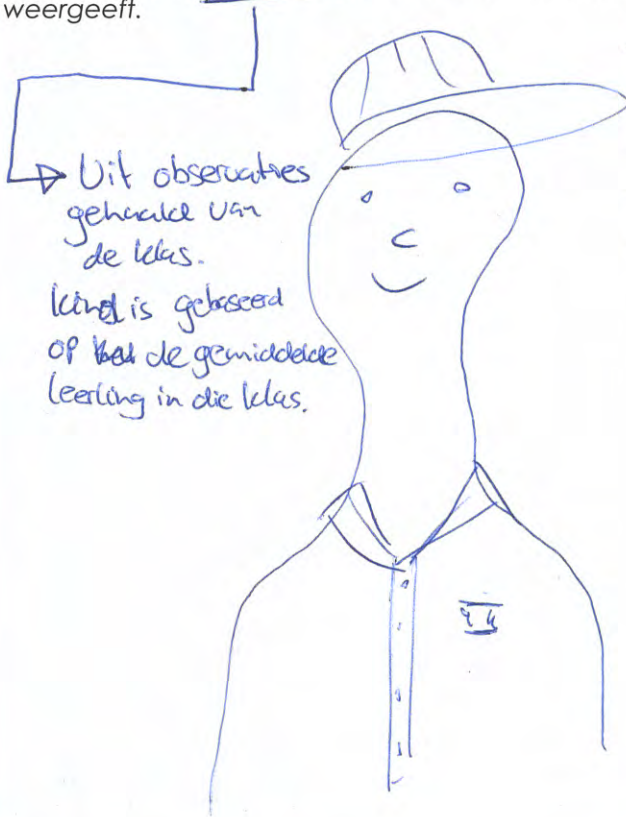 weergeeft.
Uit observaties
gehaald van
de klas.
kind is gebaseerd
op de gemiddelde
leerling in die klas.